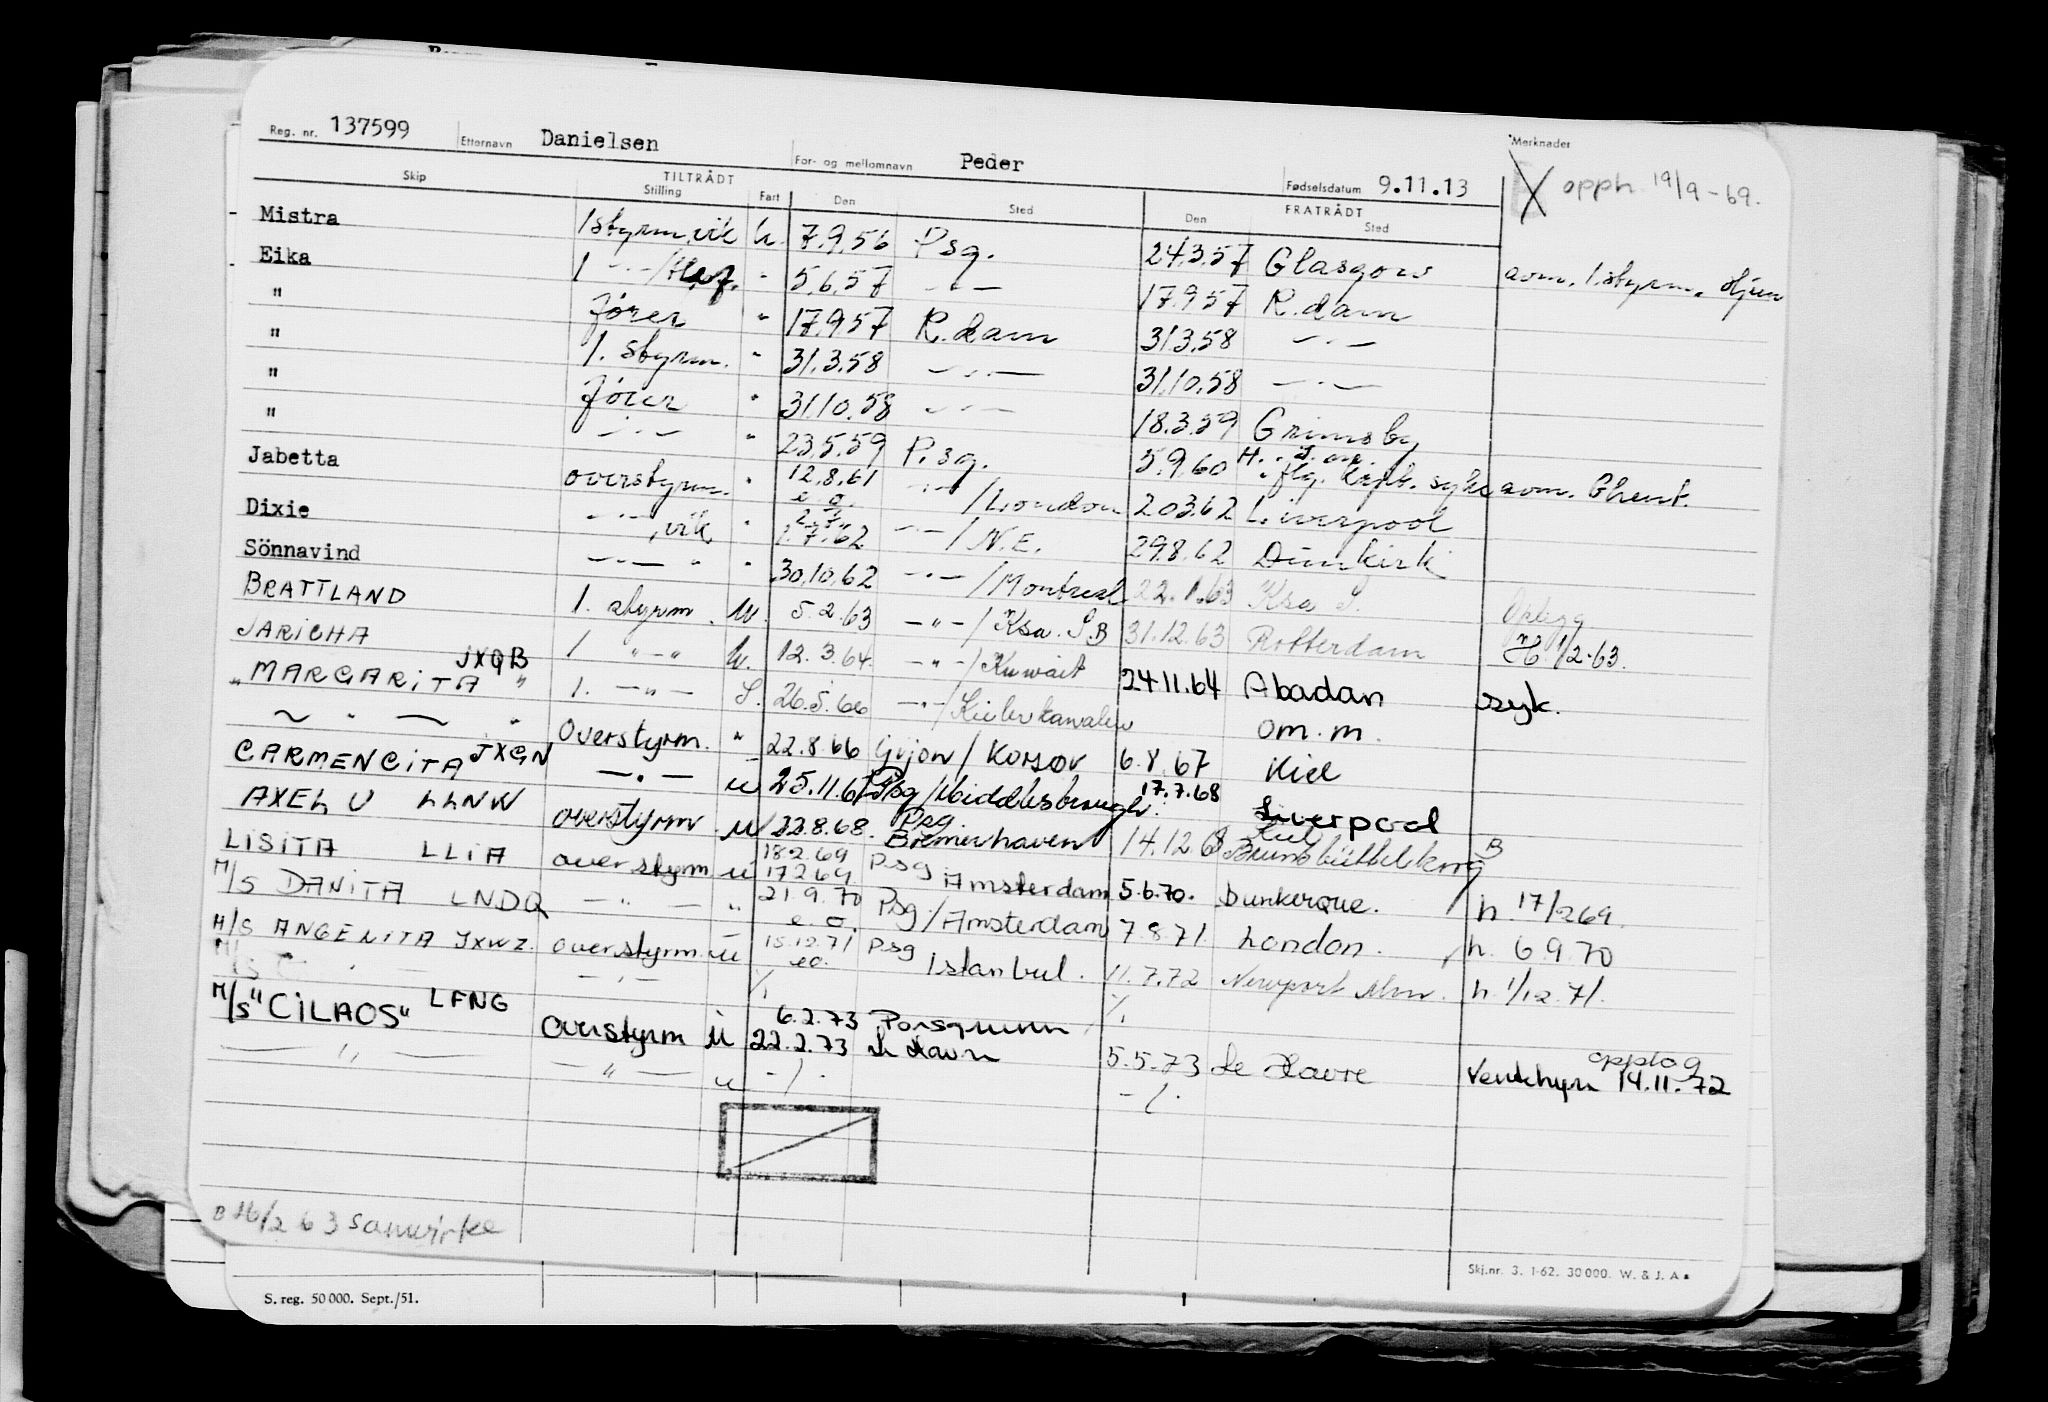 Reg. nr. 137599 Etternavn Danielsen For- og mellomnavn Peder Fødselsdatum 9.11.13 Merknader
X opph. 19/9-69.
Skip TILTRÅDT Stilling Fart Den Sted FRATRÅDT Den Sted
Mistra 1styrm, vik u. 7.9.56 Psg. 24.3.57 Glasgow avm. 1.styrm. Hjem
Eika 1 -"- " 5.6.57 -"- 17.9.57 R.dam
" fører " 17.9.57 R.dam 31.3.58 -"-
" 1. styrm. " 31.3.58 -"- 31.10.58 -"-
" fører " 31.10.58 -"- 18.3.59 Grimsby
" -"- " 23.5.59 P.sg. 5.9.60 flg. syke avm. Ghent.
Jabetta overstyrm. " 12.8.61 e.o. -"- /London 20.3.62 Liverpool
Dixie -"-, vik " 2.7.62 -"- /N.E. 29.8.62 Dunkirk
Sönnavind -"- " " 30.10.62 -"- /Montreal 22.1.63 Ksa S. Opplegg
BRATTLAND 1. styrm. u. 5.2.63 -"- /Ksa. S B 31.12.63 Rotterdam H. 1/2-63.
JARICHA 1 "-" u. 12.3.64. -"- /Kuwait 24.11.64 Abadan syk.
" MARGARITA " JXQB 1. -"- S. 26.5.66 -"- /Kielerkanalen om.m.
~ " — " Overstyrm. " 22.8.66 Gijon/Korsør 6.8.67 Kiel
CARMENCITA JXGN -"- u 25.11.67 Psg/Middlesbrough. 17.7.68 Liverpool
AXEL U LLNW overstyrm u 22.8.68. Psg. Bremerhaven 14.12.68 Kiel Brunsbüttelkoog B
LISITA LLIA overstyrm u 18.2.69 17.2.69 Psg Amsterdam 5.6.70. Dunkerque. h. 17/2 69.
M/S DANITA LNDQ -"- " 21.9.70 e.o. Psg/Amsterdam 7.8.71. London. h. 6.9.70
M/S ANGENITA JXWZ. overstyrm u 15.12.71 eo. Psg Istanbul. 11.7.72 Newport Mon. h. 1/12.71.
M/S -"- -"- ./. ./.
M/S "CILAOS" LFNG Overstyrm u 6.2.73 22.2.73 Porsgrunn, Le Havre 5.5.73 Le Havre opptog Ventehyre 14.11.72
— " — — " — u -/. -/.
B 16/2 63 samvirke
Skj.nr. 3. 1-62. 30000. W. & J. A.
S. reg. 50 000. Sept./51.